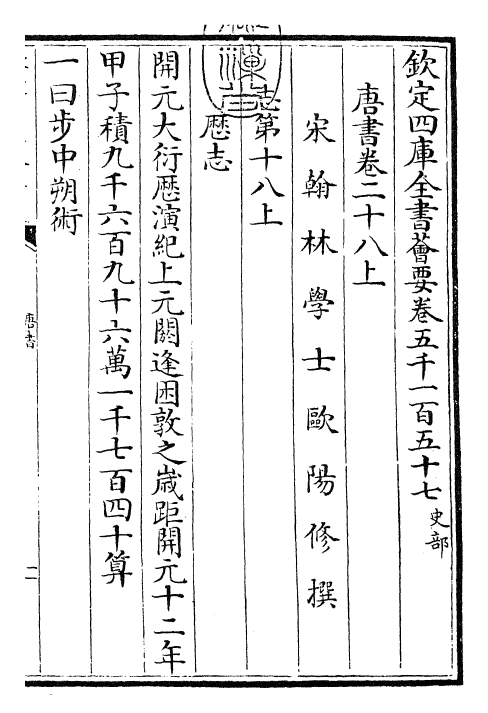 欽定四庫全書薈要卷五千一百五十七 史部
唐書卷二十八上
宋翰林學士歐陽修撰
志第十八上
歴志
開元大衍歴演紀上元閼逢困敦之嵗距開元十二年
甲子積九千六百九十六萬一千七百四十算
一曰步中朔術
唐書
二